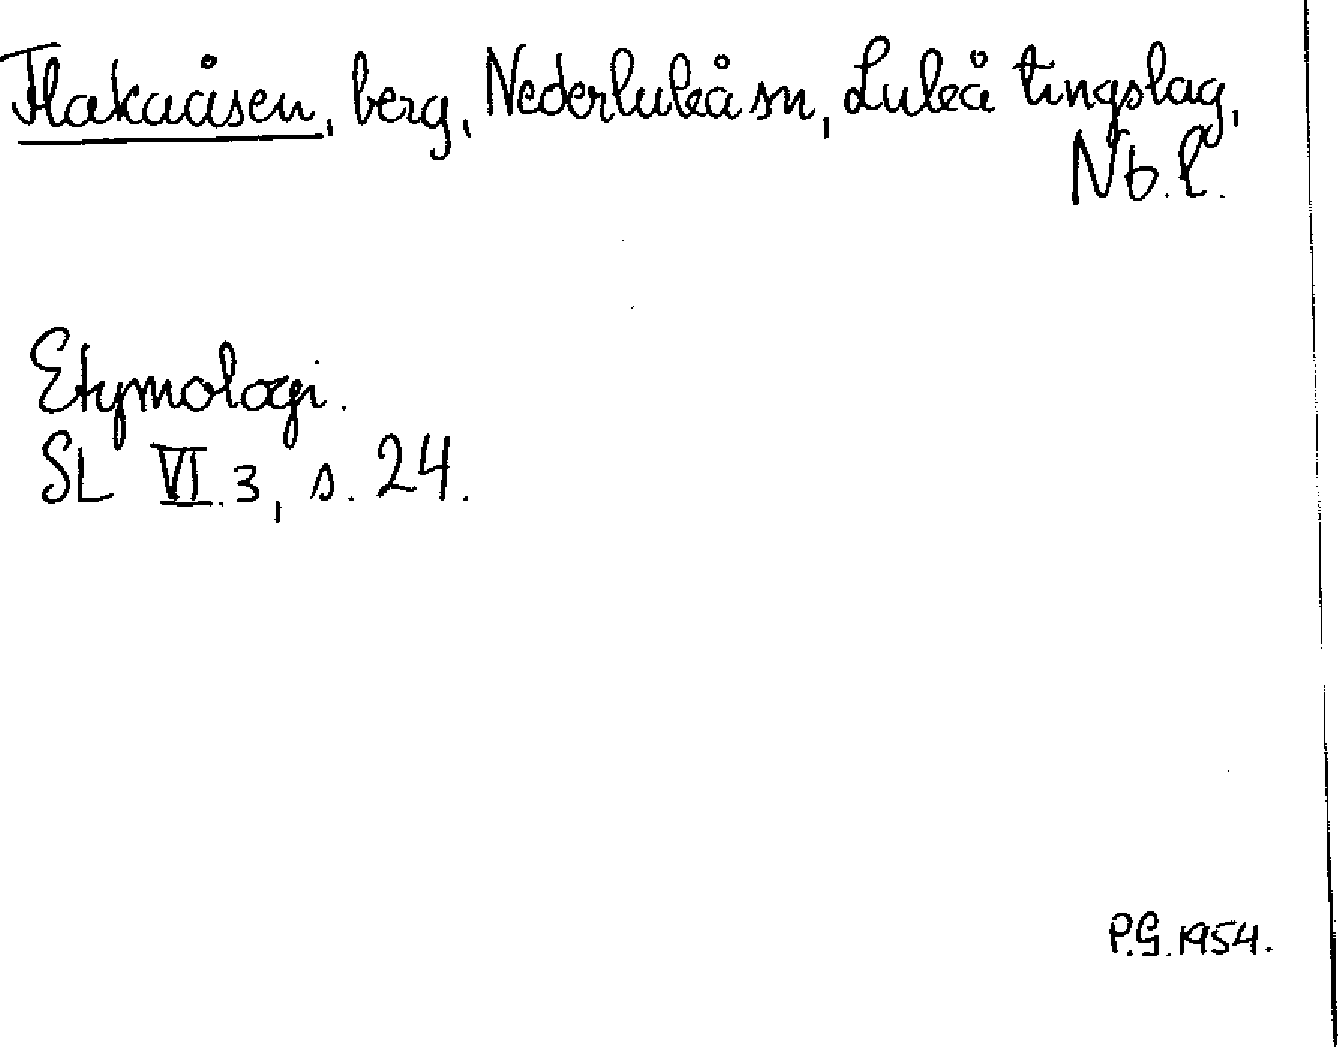 Flakaåsen, berg, Nederluleå sn, Luleå tingslag,
Nb.l.
Etymologi.
SL VI.3, s. 24.
P.G. 1954.